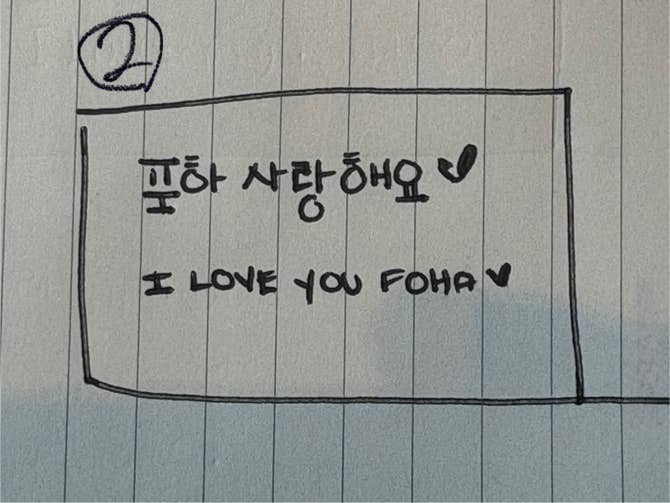 2
포하 사랑해요♥
I LOVE YOU FOHA♥